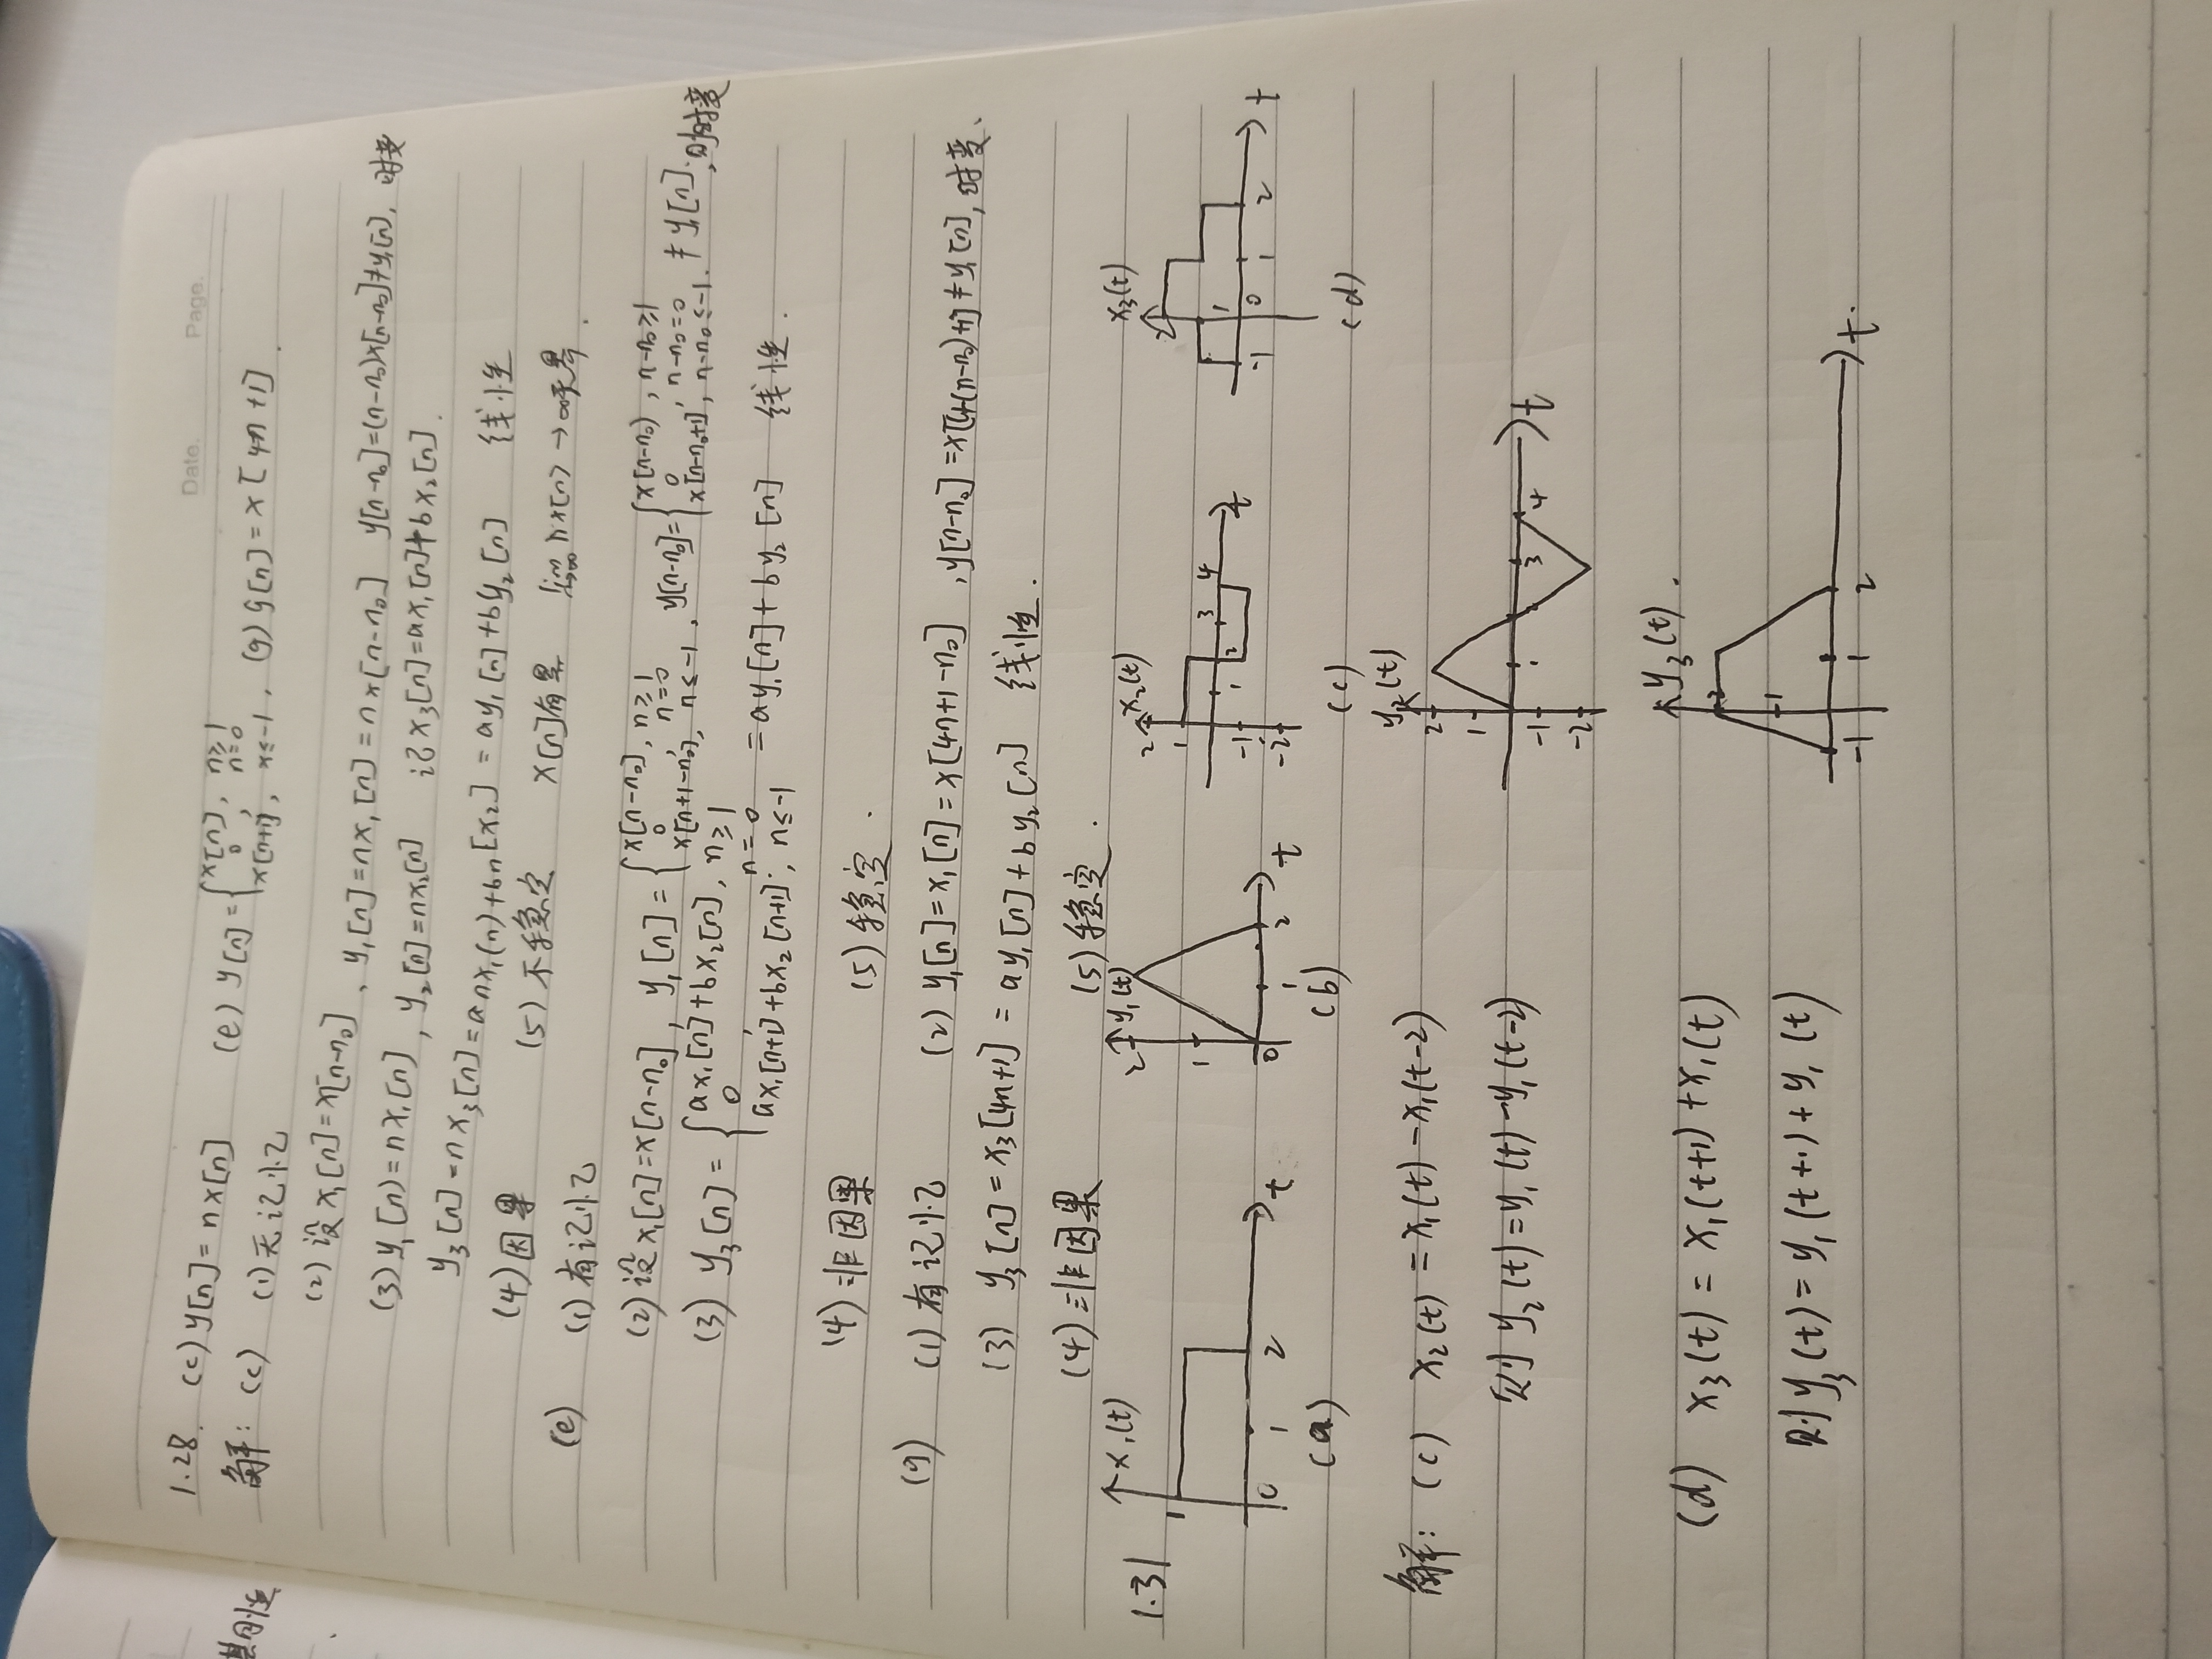 Date. Page.
1.28. (c) y[n]=nx[n] (e) y[n]={x[n], n≥1 0, n=0 x[n+1], x≤-1, (g) y[n]=x[4n+1].
解: (c) (1)无记忆
(2)设x₁[n]=x[n-n₀], y₁[n]=nx₁[n]=nx[n-n₀] y[n-n₀]=(n-n₀)x[n-n₀]≠y₁[n], 时变
(3) y₁[n]=nx₁[n], y₂[n]=nx₂[n] 记x₃[n]=ax₁[n]+bx₂[n].
y₃[n]=nx₃[n]=anx₁(n)+bn[x₂]=ay₁[n]+by₂[n] 线性
(4)因果 (5)不稳定 x[n]有界 lim n→∞ nx[n]→∞无界.
(e) (1)有记忆
(2)设x₁[n]=x[n-n₀], y₁[n]={x[n-n₀], n≥1 0, n=0 x[n+1-n₀], n≤-1, y[n-n₀]={x[n-n₀), n-n₀≥1 0, n-n₀=0 x[n-n₀+1], n-n₀≤-1. ≠y₁[n]. 时变
(3) y₃[n]={ax₁[n]+bx₂[n], n≥1 0, n=0 ax₁[n+1]+bx₂[n+1]; n≤-1 =ay₁[n]+by₂[n] 线性.
(4)非因果 (5)稳定.
(g) (1)有记忆 (2) y₁[n]=x₁[n]=x[4n+1-n₀], y[n-n₀]=x[4(n-n₀)+1]≠y₁[n], 时变.
(3) y₃[n]=x₃[4n+1]=ay₁[n]+by₂[n] 线性.
(4)非因果 (5)稳定.
1.31 x₁(t) 1 0 1 2 t y₁(t) 2 1 0 1 2 t x₂(t) 2 1 -1 -2 1 2 3 4 t x₃(t) 2 1 -1 0 1 2 t
(a) (b) (c) (d)
解: (c) x₂(t)=x₁(t)-x₁(t-2)
则y₂(t)=y₁(t)-y₁(t-2) y₂(t) 2 1 -1 -2 1 3 4 t
(d) x₃(t)=x₁(t+1)+x₁(t)
则y₃(t)=y₁(t+1)+y₁(t) y₃(t). 2 1 -1 1 2 t.